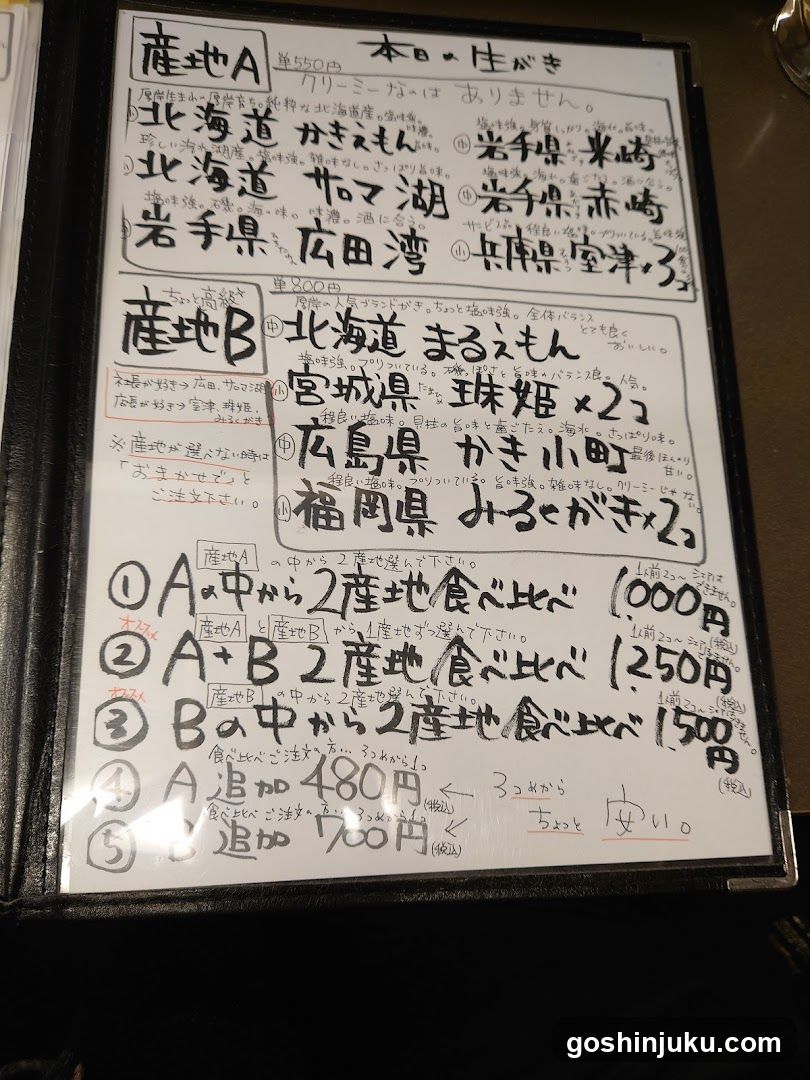 本日の生がき
産地A
単550円
クリーミーなのは ありません。
厚岸生まれの厚岸育ち。純粋な北海道産。塩味強。
北海道 かきえもん
珍しい汽水湖産。塩味強。雑味なし。さっぱり旨味。
北海道 サロマ湖
塩味強。磯。海の味。味濃。酒に合う。
岩手県 広田湾
塩味強。身質しっかり。海水。旨味。
中 岩手県 米崎
塩味強。海水。歯ごたえ。酒に合う。
中 岩手県 赤崎
サービス品。程良い塩味。プリついている。旨味強
小 兵庫県 室津×3コ
ちょっと高級
産地B
単800円
厚岸の人気ブランドがき。ちょっと塩味強。全体バランス
とても良く
おいしい。
中 北海道 まるえもん
塩味強。プリついている。磯っぽさと旨味のバランス良。人気。
小 宮城県 珠姫×2コ
程良い塩味。貝柱の旨味と歯ごたえ。海水。さっぱり味。
中 広島県 かき小町
最後ほんのり
甘い。
程良い塩味。プリついている。旨味強。雑味なし。クリーミーじゃない。
小 福岡県 みるくがき×2コ
社長が好き→広田、サロマ湖
店長が好き→室津、珠姫、
みるくがき
※産地が選べない時は
「おまかせで」と
ご注文下さい。
産地A の中から2産地選んで下さい。
① Aの中から2産地食べ比べ 1,000円
1人前2コ〜 シェアは
できません。
(税込)
オススメ
産地A と 産地B から1産地ずつ選んで下さい。
② A+B 2産地食べ比べ 1,250円
(税込)
オススメ
産地B の中から2産地選んで下さい。
③ Bの中から2産地食べ比べ 1,500円
(税込)
食べ比べご注文の方… 3つめから1コ
④ A 追加 480円 (税込)
← 3つめから
ちょっと 安い。
食べ比べご注文の方… 3つめから1コ
⑤ B 追加 700円 (税込)
goshinjuku.com